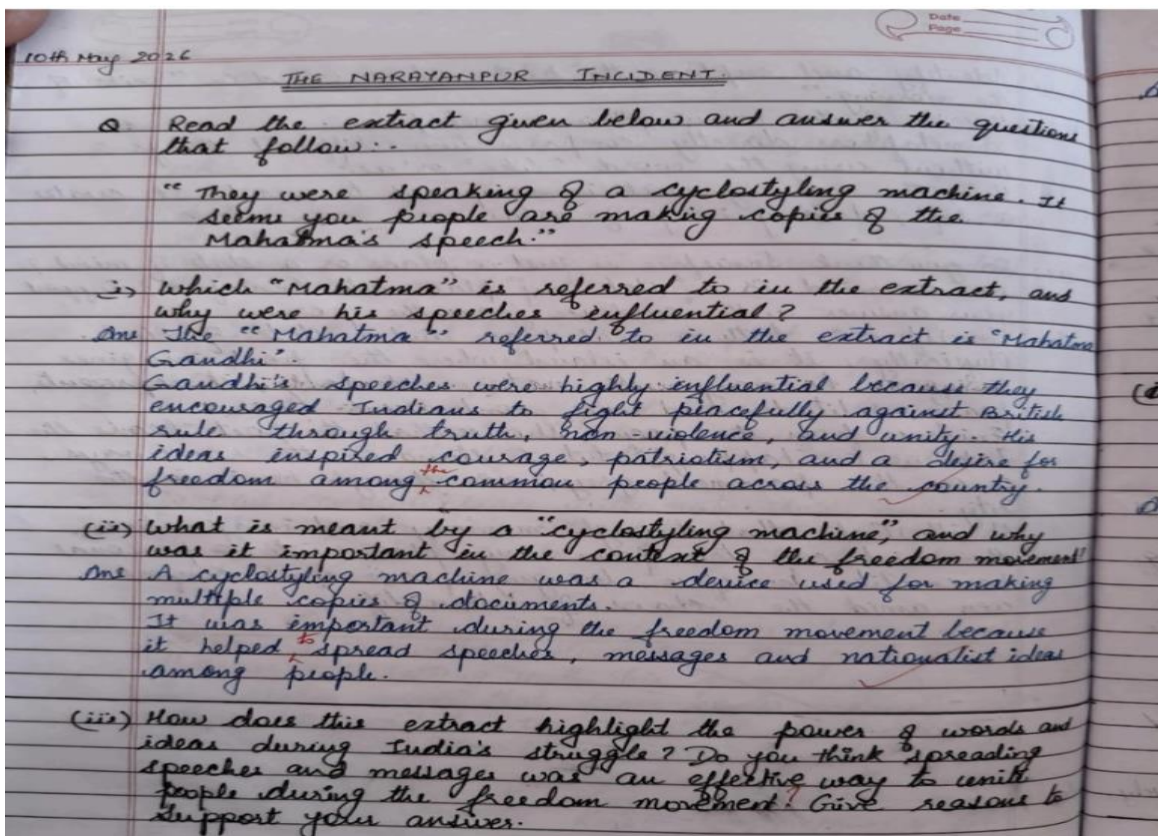 Date
Page
10th May 2026
THE NARAYANPUR INCIDENT.
Q Read the extract given below and answer the questions
that follow:-
"They were speaking of a cyclostyling machine. It
seems you people are making copies of the
Mahatma's speech."
i) which "Mahatma" is referred to in the extract, and
why were his speeches influential?
Ans The "Mahatma" referred to in the extract is "Mahatma
Gandhi".
Gandhi's speeches were highly influential because they
encouraged Indians to fight peacefully against British
rule through truth, non-violence, and unity. His
ideas inspired courage, patriotism, and a desire for
freedom among the common people across the country.
(ii) What is meant by a "cyclostyling machine", and why
was it important in the context of the freedom movement?
Ans A cyclostyling machine was a device used for making
multiple copies of documents.
It was important during the freedom movement because
it helped to spread speeches, messages and nationalist ideas
among people.
(iii) How does this extract highlight the power of words and
ideas during India's struggle? Do you think spreading
speeches and messages was an effective way to unite
people during the freedom movement? Give reasons to
support your answer.